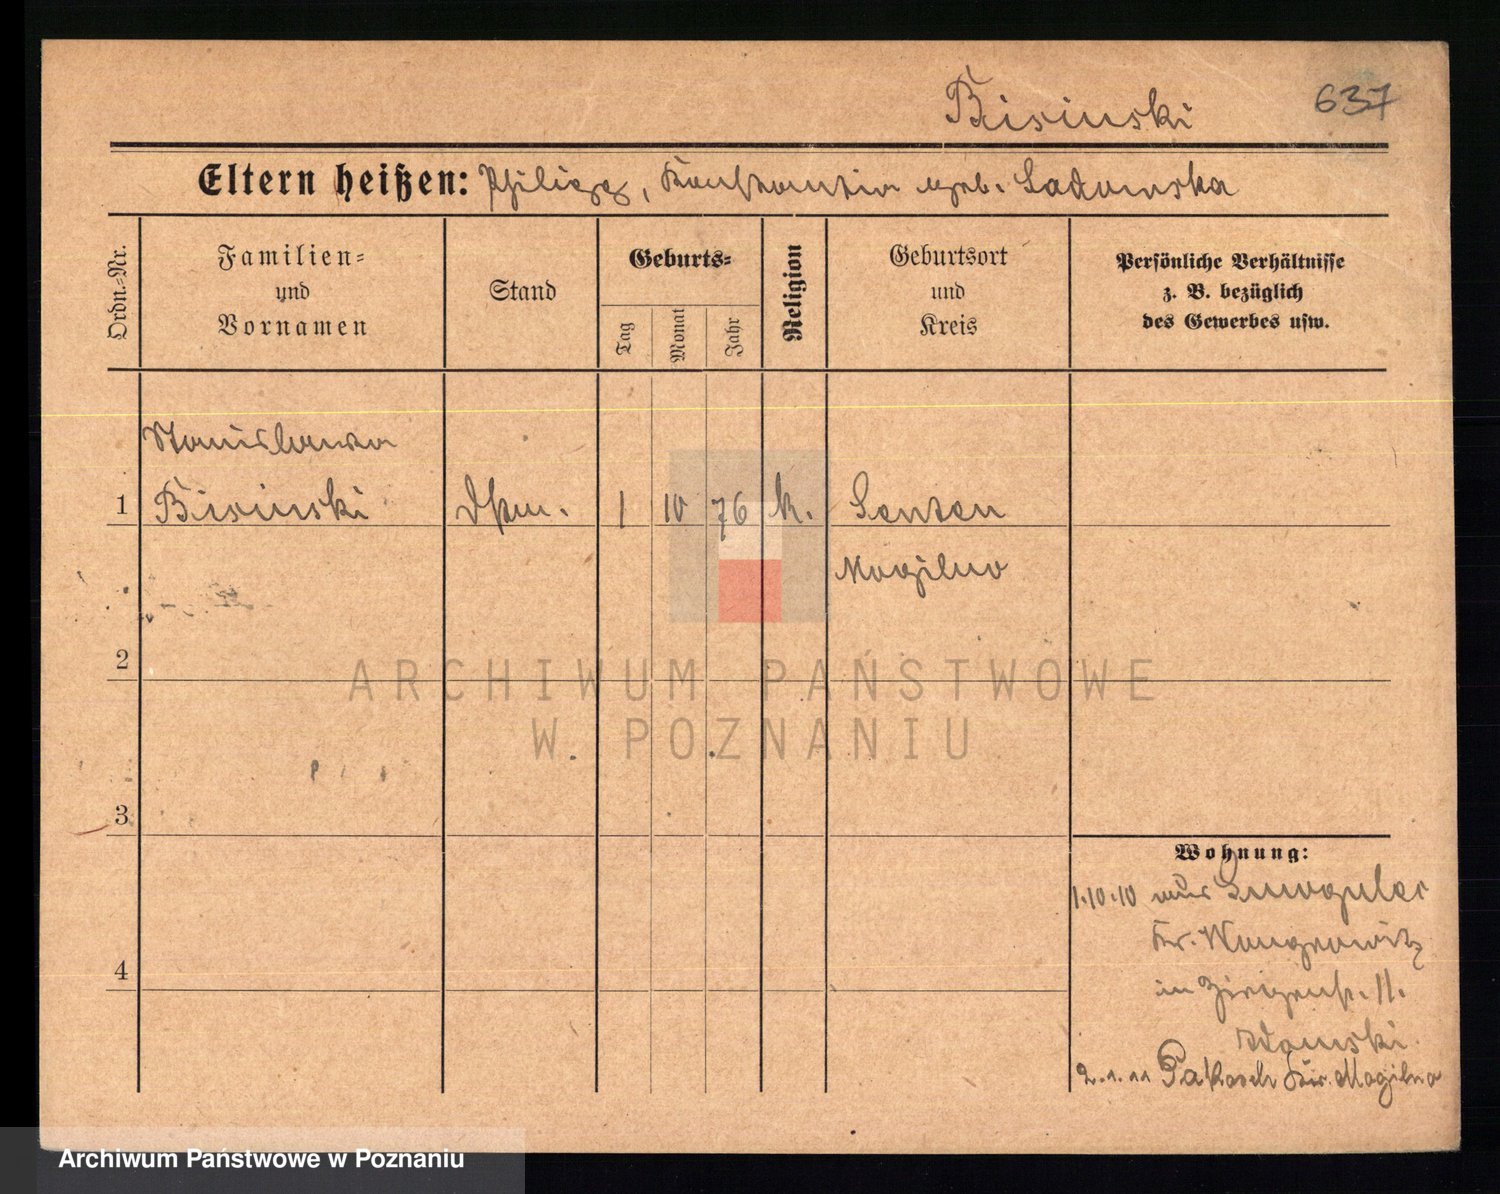 Bisinski
637
Eltern heißen: Philipp, Konstantin geb. Sadowska
Ordn.-Nr.
Familien-
und
Vornamen
Stand
Geburts-
Tag
Monat
Jahr
Religion
Geburtsort
und
Kreis
Persönliche Verhältnisse
z. B. bezüglich
des Gewerbes usw.
Stanislawa
1 Bisinski 1 10 76 k.
Mogilno
2
3
4
Wohnung:
1.10.10 aus
Kr. Wongrowitz
in 11.
2.1.11 Pakosch Kr. Mogilno
ARCHIWUM PAŃSTWOWE
W POZNANIU
Archiwum Państwowe w Poznaniu